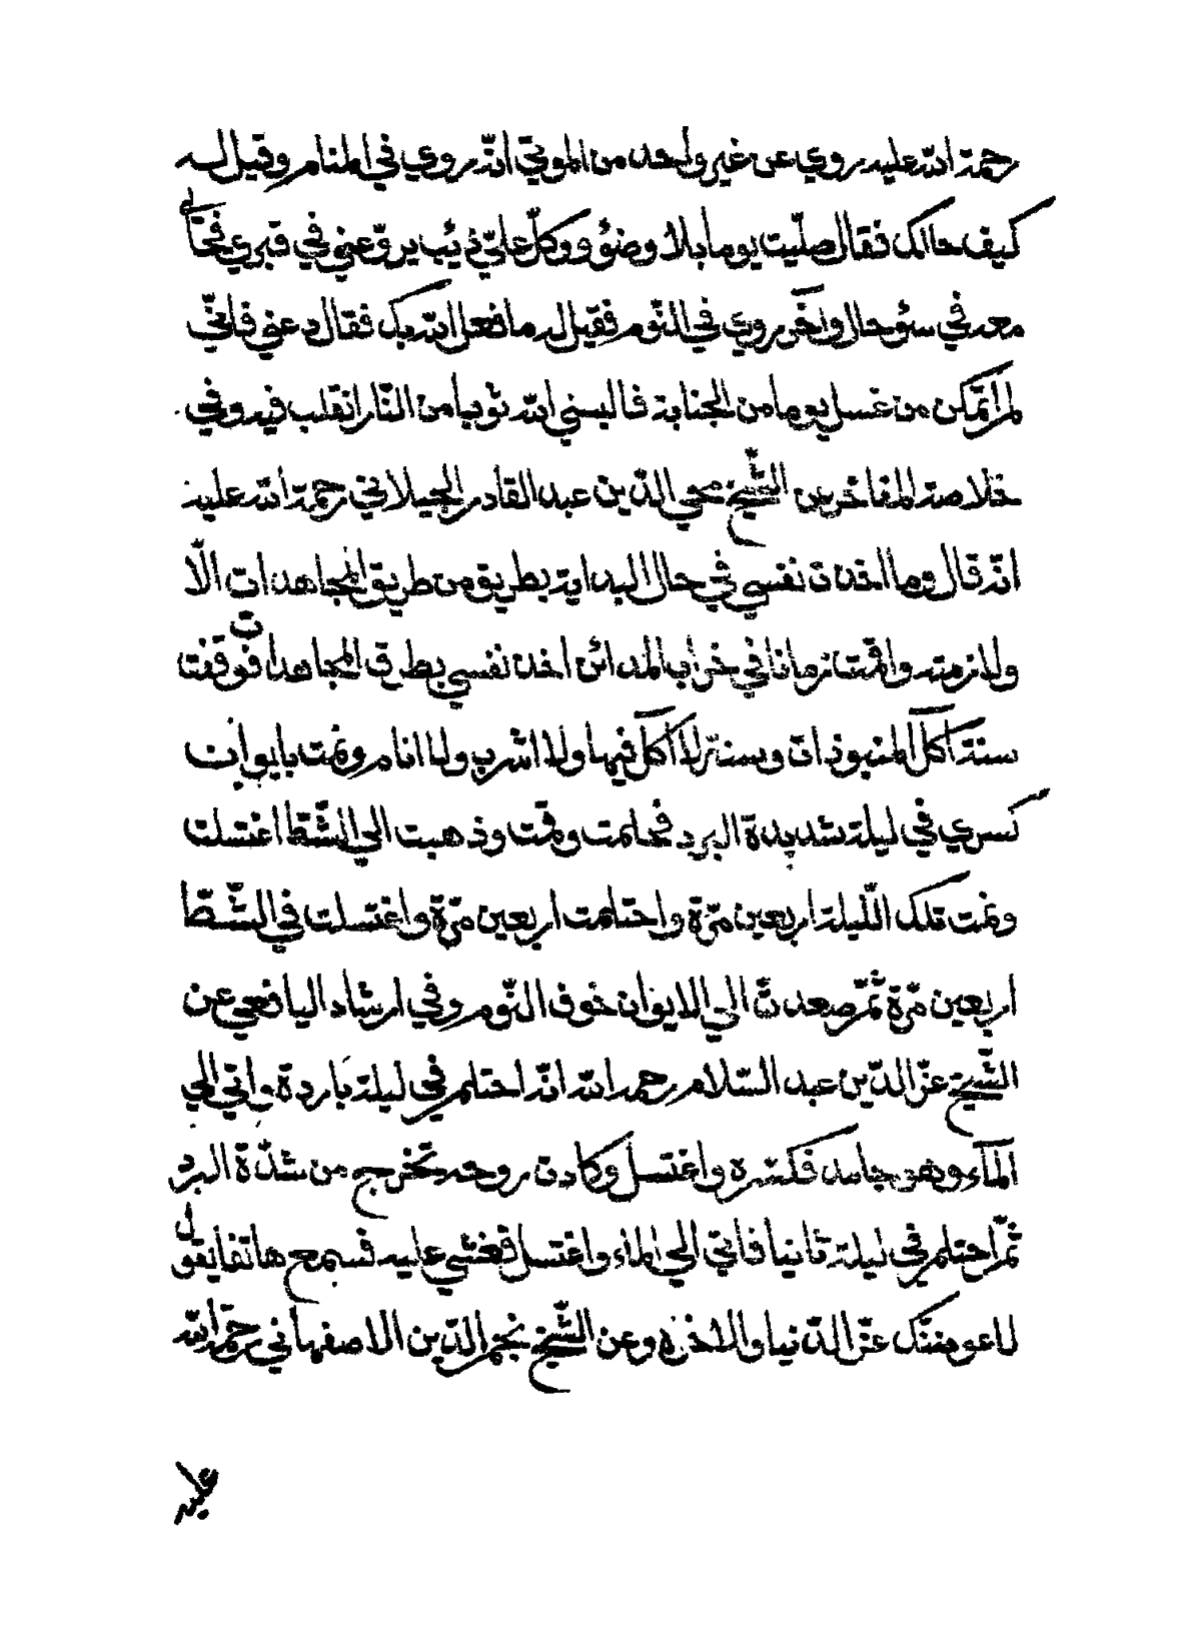 رحمة الله عليه روي عن غير واحد من الموتي انّه روي في المنام وقيل له
كيف حالك فقال صلّيت يوما بلا وضؤ ووكّل عليّ ذئب يروّعني في قبري فحالي
معه في سؤ حال وآخر روي في النّوم فقيل له ما فعل الله بك فقال دعني فانّي
لم اتمّكن من غسل يوما من الجنابة فالبسني الله ثوبا من النّار انقلب فيه وفي
خلاصة المفاخر عن الشّيخ محي الدّين عبد القادر الجيلاني رحمة الله عليه
انّه قال وما اخذت نفسي في حال البداية بطريق من طريق المجاهدات الّا
ولازمته واقمت زمانا في خراب المدائن اخذ نفسي بطرق المجاهدات فوقفت
سنة آكل المنبوذات وسنة لا آكل فيها ولا اشرب ولا انام ونمت بايوان
كسري في ليلة شديدة البرد فحلمت وقمت وذهبت الي الشّطّ اغتسلت
ونمت تلك اللّيلة اربعين مرّة واحتلمت اربعين مرّة واغتسلت في الشّطّ
اربعين مرّة ثمّ صعدت الي الايوان خوف النّوم وفي ارشاد اليافعي عن
الشّيخ عزّ الدّين عبد السّلام رحمه الله انّه احتلم في ليلة باردة واتي الي
المآء وهو جامد فكسّره واغتسل وكادت روحه تخرج من شدّة البرد
ثمّ احتلم في ليلة ثانيا فاتي الي الماء واغتسل فغشي عليه فسمع هاتفا يقول
لاعوضنّك عزّ الدّنيا والاخره وعن الشّيخ نجم الدّين الاصفهاني رحمه الله
عليه